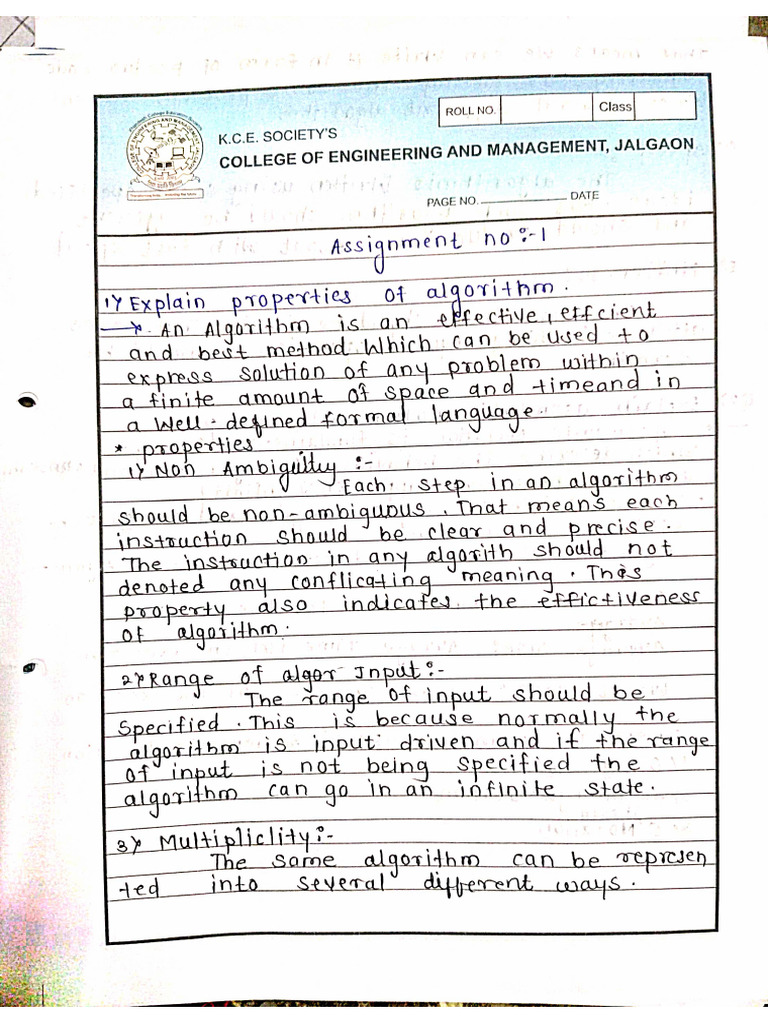 ROLL NO. Class
K.C.E. SOCIETY'S
COLLEGE OF ENGINEERING AND MANAGEMENT, JALGAON
PAGE NO. DATE
Assignment no:-1
1) Explain properties of algorithm.
→ An Algorithm is an effective, effcient
and best method Which can be used to
express solution of any problem within
a finite amount of space and timeand in
a Well-defined formal language.
* properties
1) Non Ambiguity :-
Each step in an algorithm
should be non-ambiguous. That means each
instruction should be clear and precise.
The instruction in any algorith should not
denoted any conflicating meaning. This
property also indicates the effictiveness
of algorithm.
2) Range of algor Input:-
The range of input should be
Specified. This is because normally the
algorithm is input driven and if the range
of input is not being specified the
algorithm can go in an infinite state.
3) Multipliclity:-
The same algorithm can be represen
ted into several different ways.